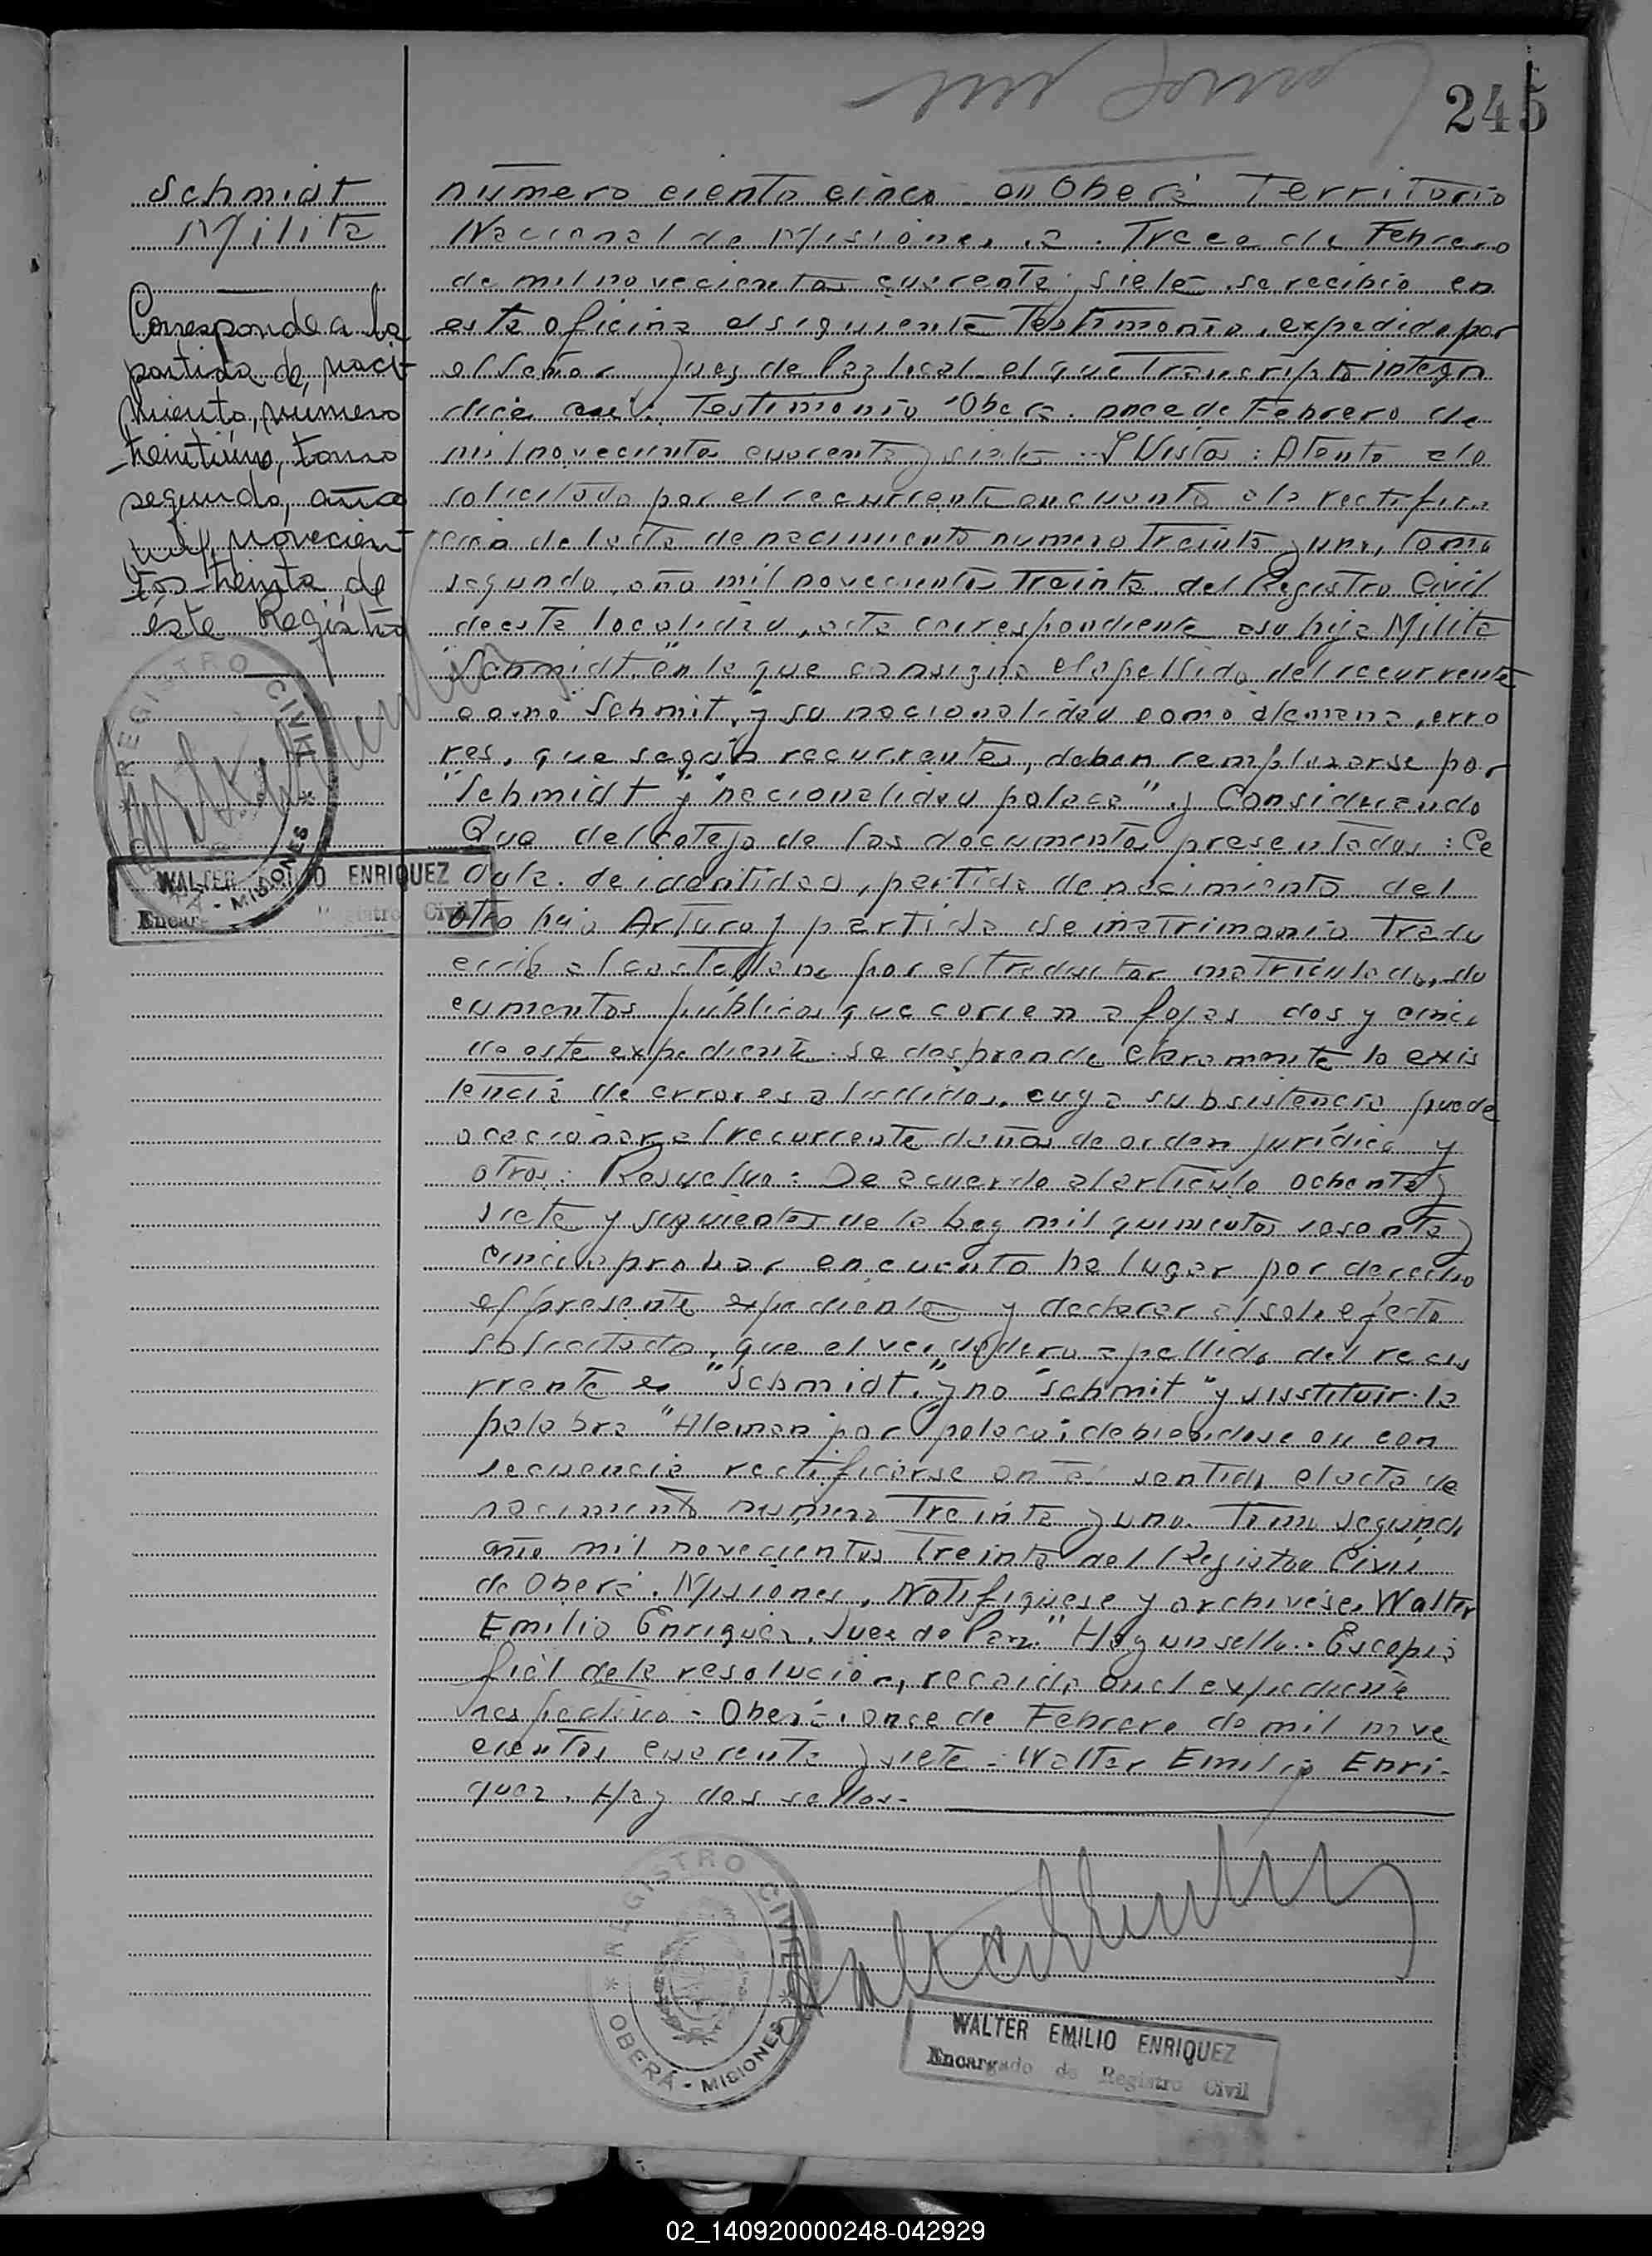 245
Schmidt
Milita
Corresponde a la
partida de naci-
miento, número
treintiúno, tomo
segundo, año
mil novecien
tos treinta de
éste Registro
REGISTRO CIVIL
MISIONES
WALTER EMILIO ENRIQUEZ
Registro Civil
número ciento cinco en Oberá Territorio
Nacional de Misiones, a Trece de Febrero
de mil novecientos cuarenta y siete se recibió en
esta oficina el siguiente Testimonio, expedido por
el Señor Juez de Paz local el que Transcripto integro
dice así: Testimonio "Oberá once de Febrero de
mil novecientos cuarenta y siete Y Vistos: Atento a lo
solicitado por el recurrente en cuanto a la rectifica
ción del acta de nacimiento numero Treinta y uno, tomo
segundo, año mil novecientos Treinta del Registro Civil
de esta localidad, acta correspondiente a su hija Milita
Schmidt, en la que consigna el apellido del recurrente
como Schmit, y su nacionalidad como alemana, erro
res, que según recurrente, deben remplazarse por
"Schmidt y "nacionalidad polaca" y Considerando
Que del cotejo de los documentos presentados: Ce
dula de identidad, partida de nacimiento del
otro hijo Arturo y partida de matrimonio tradu
cción al castellano por el traductor matriculado, do
cumentos públicos que corren a fojas dos y cinco
de este expediente se desprende claramente la exis
tencia de errores aludidos, cuya subsistencia puede
ocacionar al recurrente daños de orden jurídico y
otros: Resuelvo: De acuerdo al artículo ochenta y
siete y siguientes de la Ley mil quinientos sesenta y
cinco aprobar en cuanto ha lugar por derecho
el presente expediente y declarar al solo efecto
solicitado, que el verdadero apellido del recu
rrente es "Schmidt," y no "Schmit" y sustituir la
palabra "Aleman por "polaco; debiendose en con
secuencia rectificarse en tal sentido el acta de
nacimiento numero Treinta y uno Tomo segundo
año mil novecientos Treinta del Registro Civil
de Oberá. Misiones, Notifíquese y archívese, Walter
Emilio Enriquez. Juez de Paz." Hay un sello. Es copia
fiel de la resolución, recaida en el expediente
respectivo - Oberá: once de Febrero de mil nove
cientos cuarenta y siete - Walter Emilio Enri-
quez. Hay dos sellos.-
REGISTRO CIVIL
OBERÁ - MISIONES
WALTER EMILIO ENRIQUEZ
Encargado de Registro Civil
02_140920000248-042929